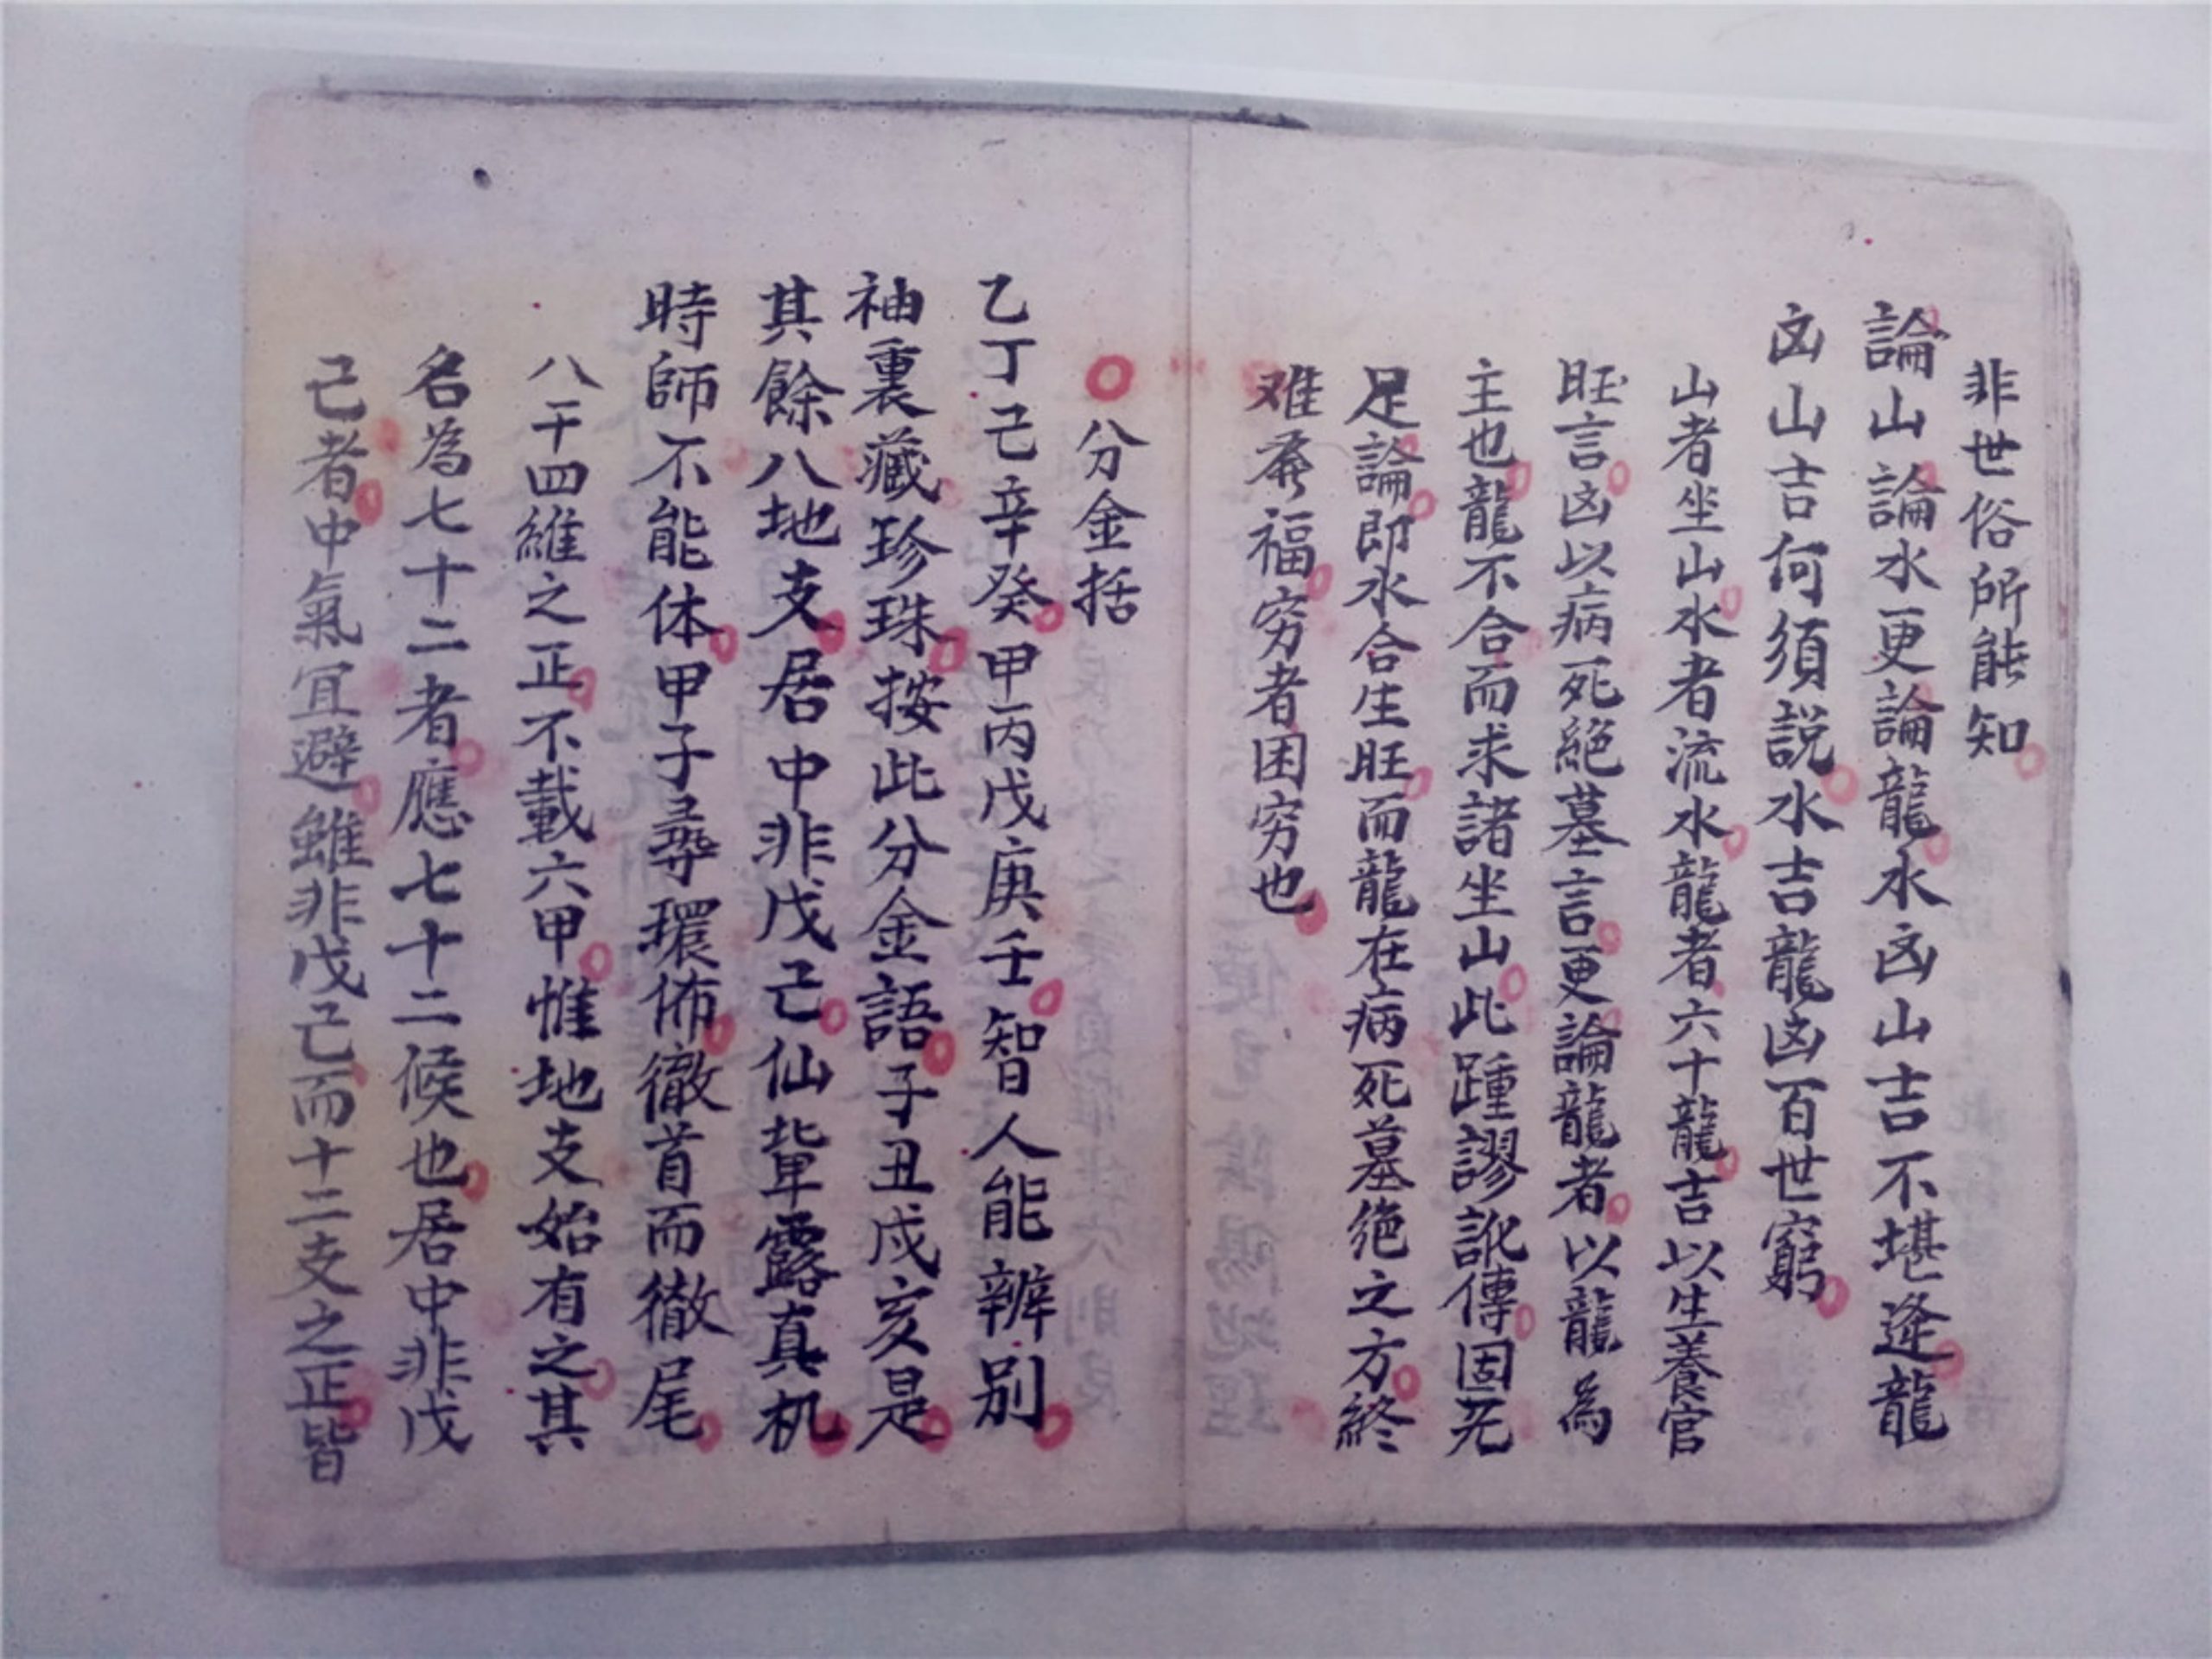 非世俗所能知
論山論水更論龍水凶山吉不堪逢龍
凶山吉何須説水吉龍凶百世窮
山者坐山水者流水龍者六十龍吉以生養官
旺言凶以病死絕墓言更論龍者以龍為
主也龍不合而求諸坐山此踵謬訛傳固无
足論即水合生旺而龍在病死墓绝之方終
难奔福穷者困穷也
〇分金括
乙丁己辛癸甲丙戊庚壬智人能辨别
袖裏藏珍珠按此分金語子丑戌亥是
其餘八地支居中非戊己仙軰露真机
時師不能体甲子尋環佈徹首而徹尾
八干四維之正不載六甲惟地支始有之其
名為七十二者應七十二候也居中非戊
己者中氣宜避雖非戊己而十二支之正皆